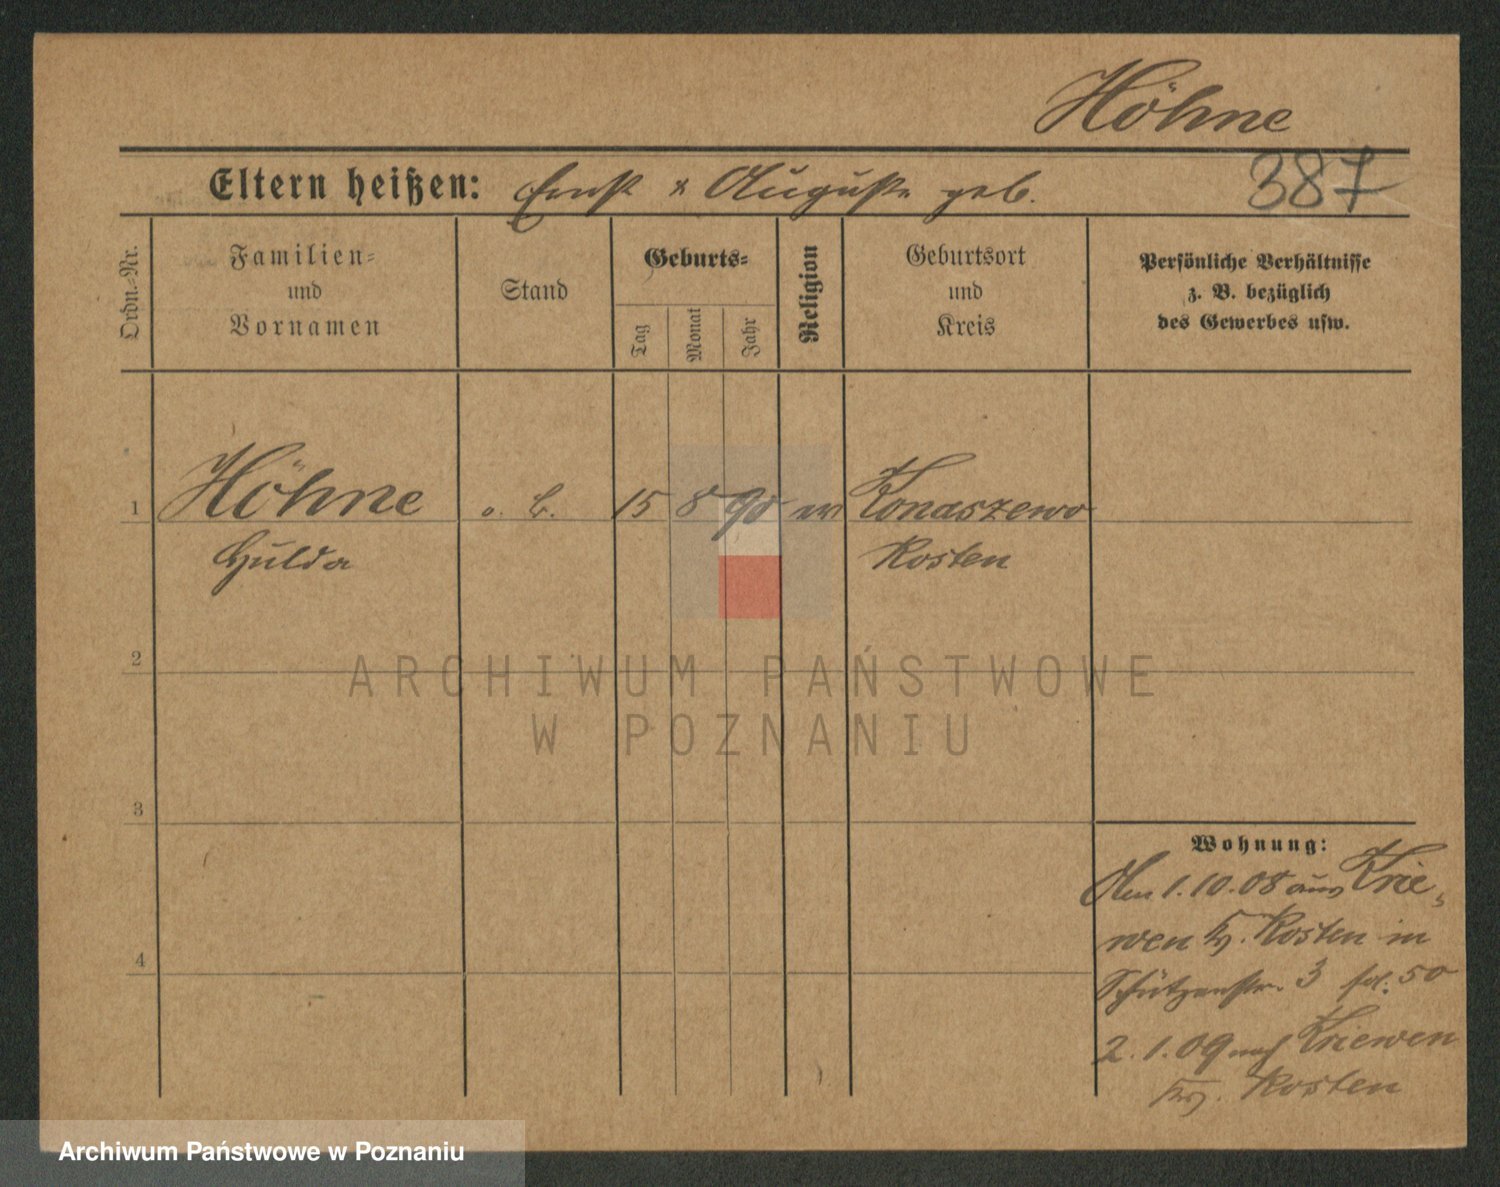 Höhne
387
Eltern heißen: Ernst & Auguste geb.
Ordn.-Nr.
Familien-
und
Vornamen
Stand
Geburts-
Tag
Monat
Jahr
Religion
Geburtsort
und
Kreis
Persönliche Verhältnisse
z. B. bezüglich
des Gewerbes usw.
1 Höhne o. B. 15 8 90 ev Konaszewo
Hulda Kosten
2
3
4
Wohnung:
Am 1.10.08 aus Krie-
wen Kr. Kosten in
Schützenstr. 3 fol. 50
2.1.09 nach Kriewen
Kr. Kosten
ARCHIWUM PAŃSTWOWE
W POZNANIU
Archiwum Państwowe w Poznaniu